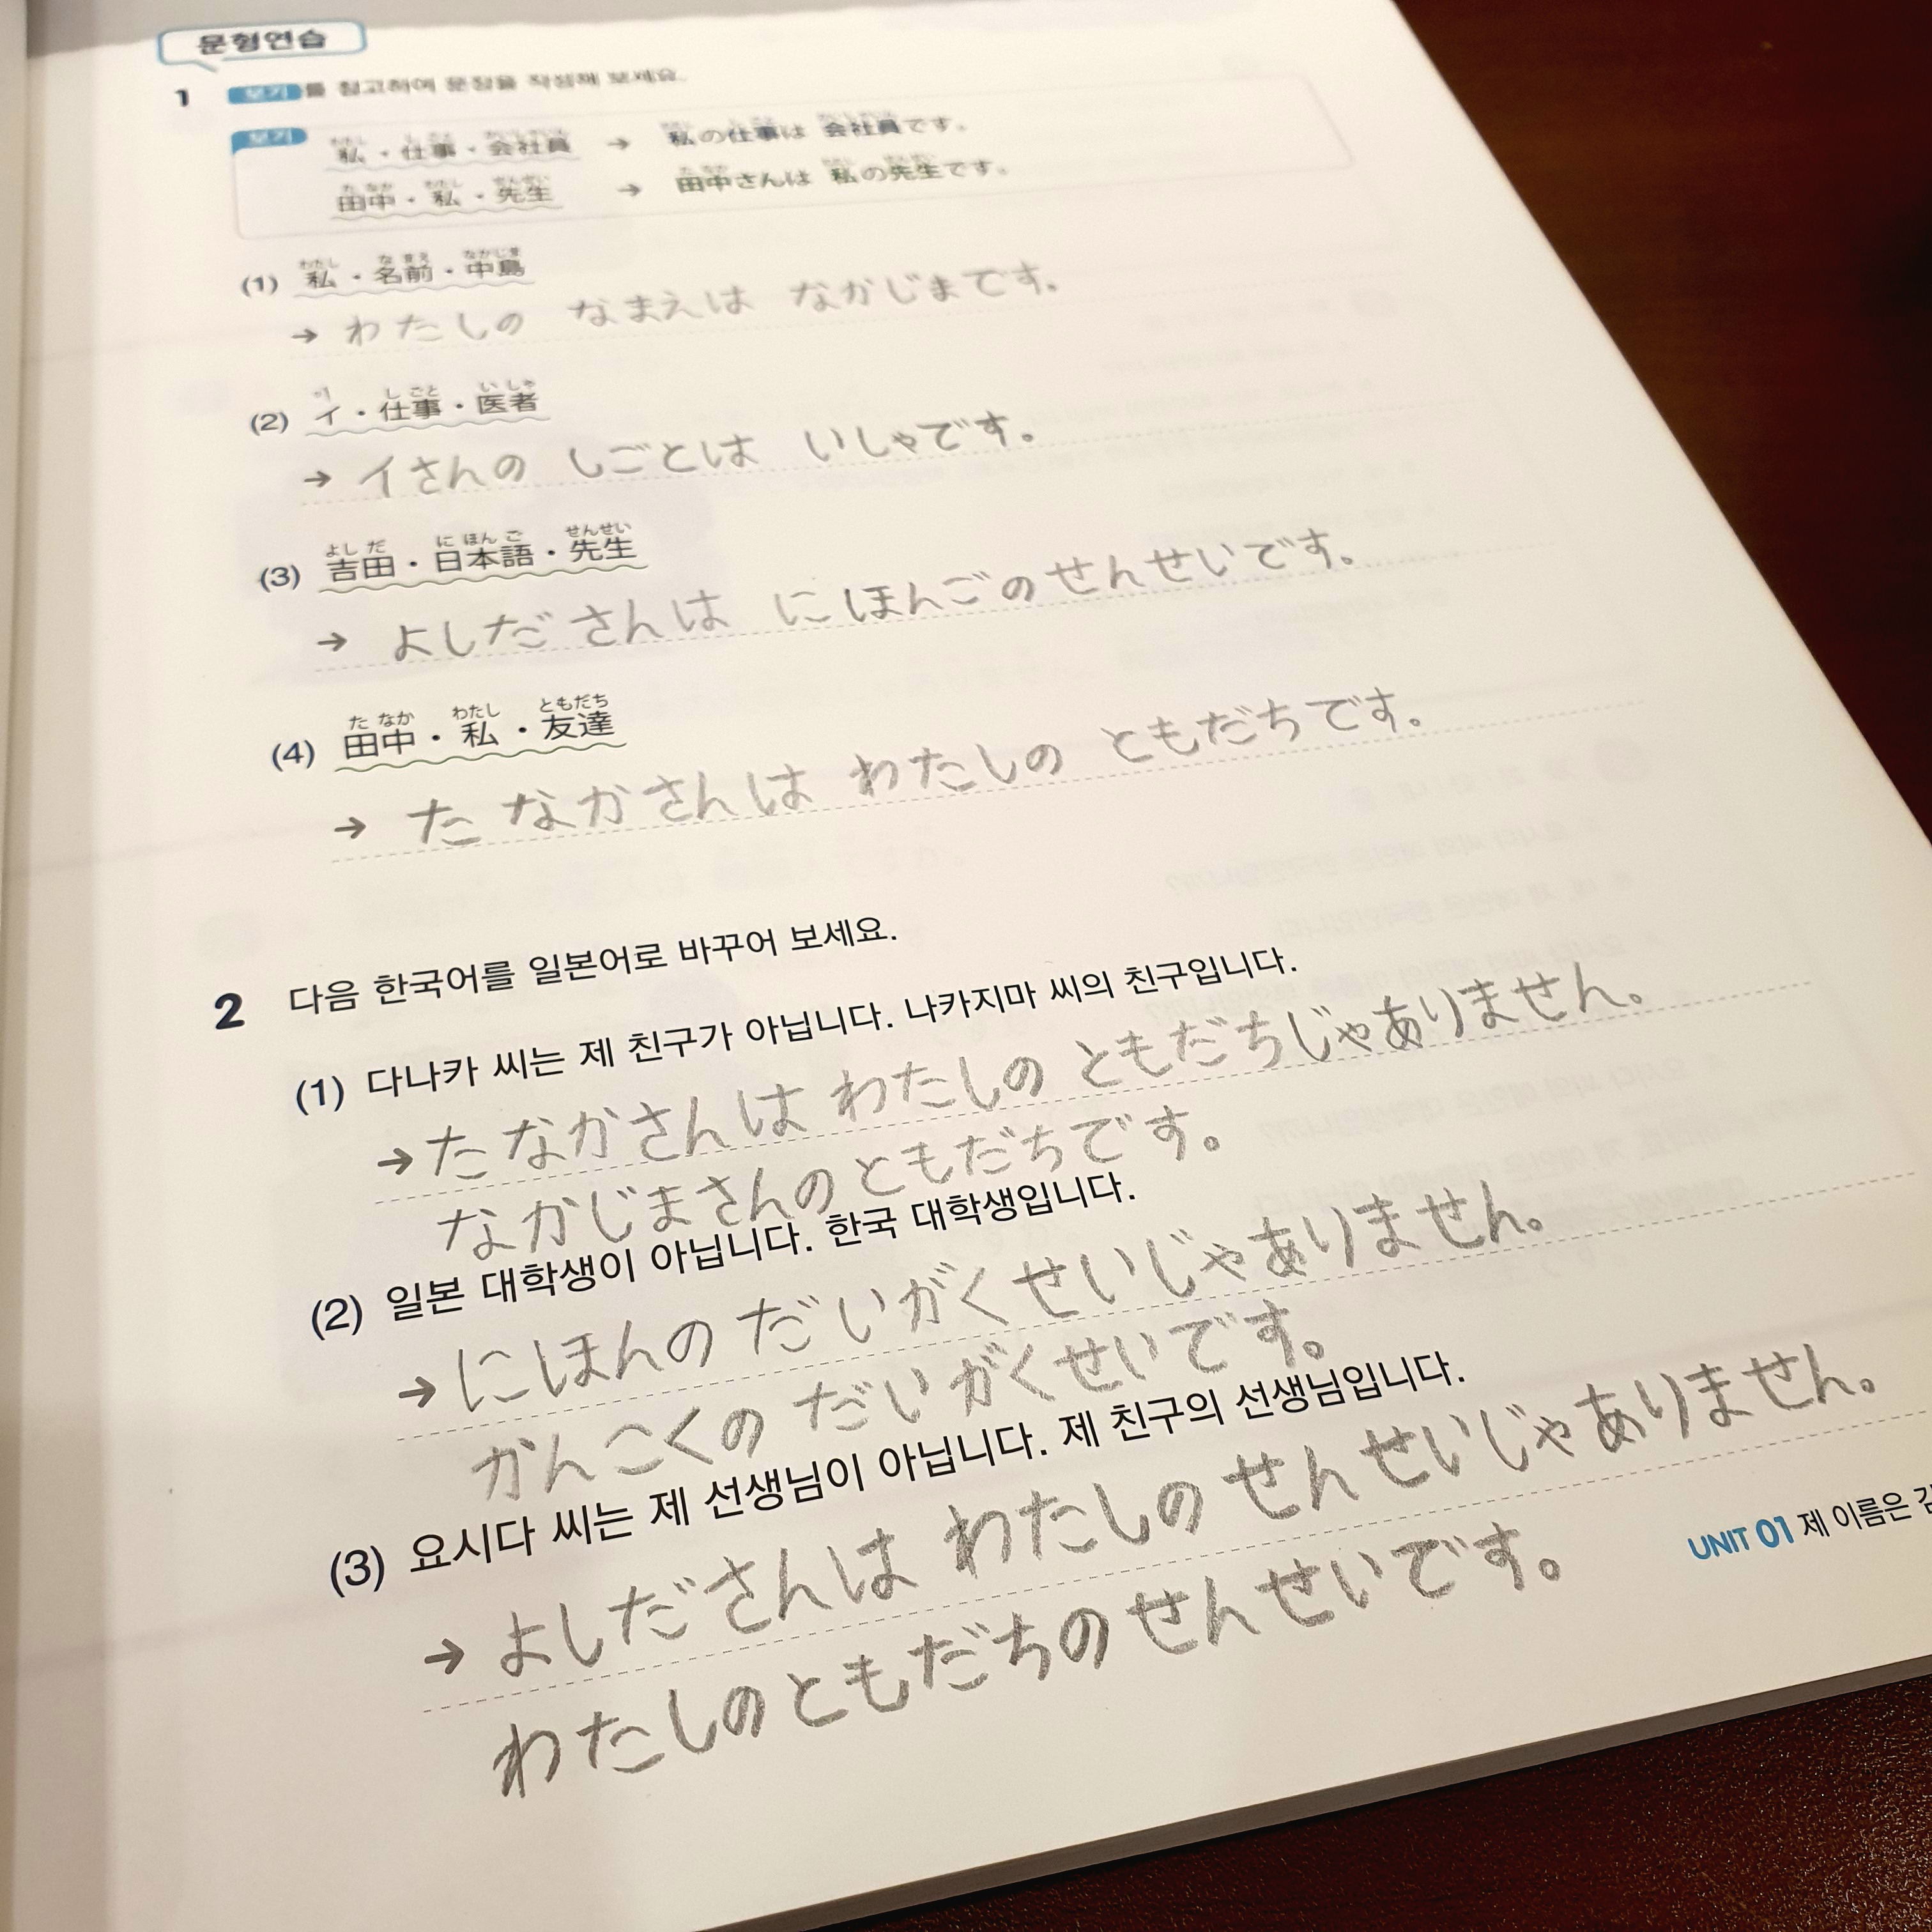 문형연습
1 보기 를 참고하여 문장을 작성해 보세요.
보기
わたし しごと かいしゃいん
私・仕事・会社員 → 私の仕事は 会社員です。
たなか わたし せんせい
田中・私・先生 → 田中さんは 私の先生です。
わたし なまえ なかじま
(1) 私・名前・中島
→ わたしの なまえは なかじまです。
이 しごと いしゃ
(2) イ・仕事・医者
→ イさんの しごとは いしゃです。
よしだ にほんご せんせい
(3) 吉田・日本語・先生
→ よしださんは にほんごのせんせいです。
たなか わたし ともだち
(4) 田中・私・友達
→ たなかさんは わたしの ともだちです。
2 다음 한국어를 일본어로 바꾸어 보세요.
(1) 다나카 씨는 제 친구가 아닙니다. 나카지마 씨의 친구입니다.
→ たなかさんは わたしの ともだちじゃありません。
なかじまさんのともだちです。
(2) 일본 대학생이 아닙니다. 한국 대학생입니다.
→ にほんの だいがくせいじゃありません。
かんこくの だいがくせいです。
(3) 요시다 씨는 제 선생님이 아닙니다. 제 친구의 선생님입니다.
→ よしださんは わたしの せんせいじゃありません。
わたしのともだちのせんせいです。
UNIT 01 제 이름은